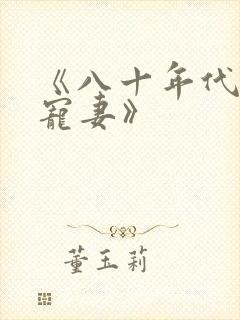 《八十年代
寵妻》
董玉莉